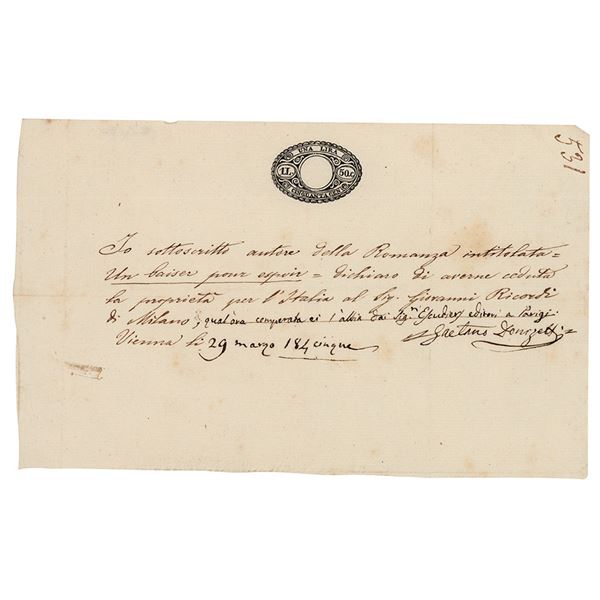 531
UNA LIRA
1 L. 50 c.
CINQUANTA CENT.
Io sottoscritto autore della Romanza intitolata =
Un baiser pour espoir = dichiaro di averne ceduta
la proprietà per l'Italia al Sig. Giovanni Ricordi
di Milano, qualora comperata ei l'abbia dai Sig.ri Escudier editori a Parigi.
Vienna li 29 marzo 184cinque
Gaetano Donizetti